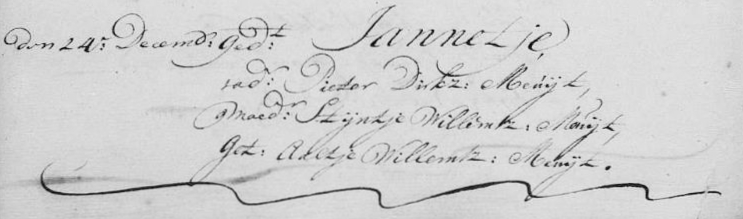 den 24.r Decemb.r Ged.t Jannetje
vad.r Pieter Dirkz: Meuijt,
Moed.r Stijntje Willemtz: Meuijt,
Get: Aaltje Willemtz: Meuijt.